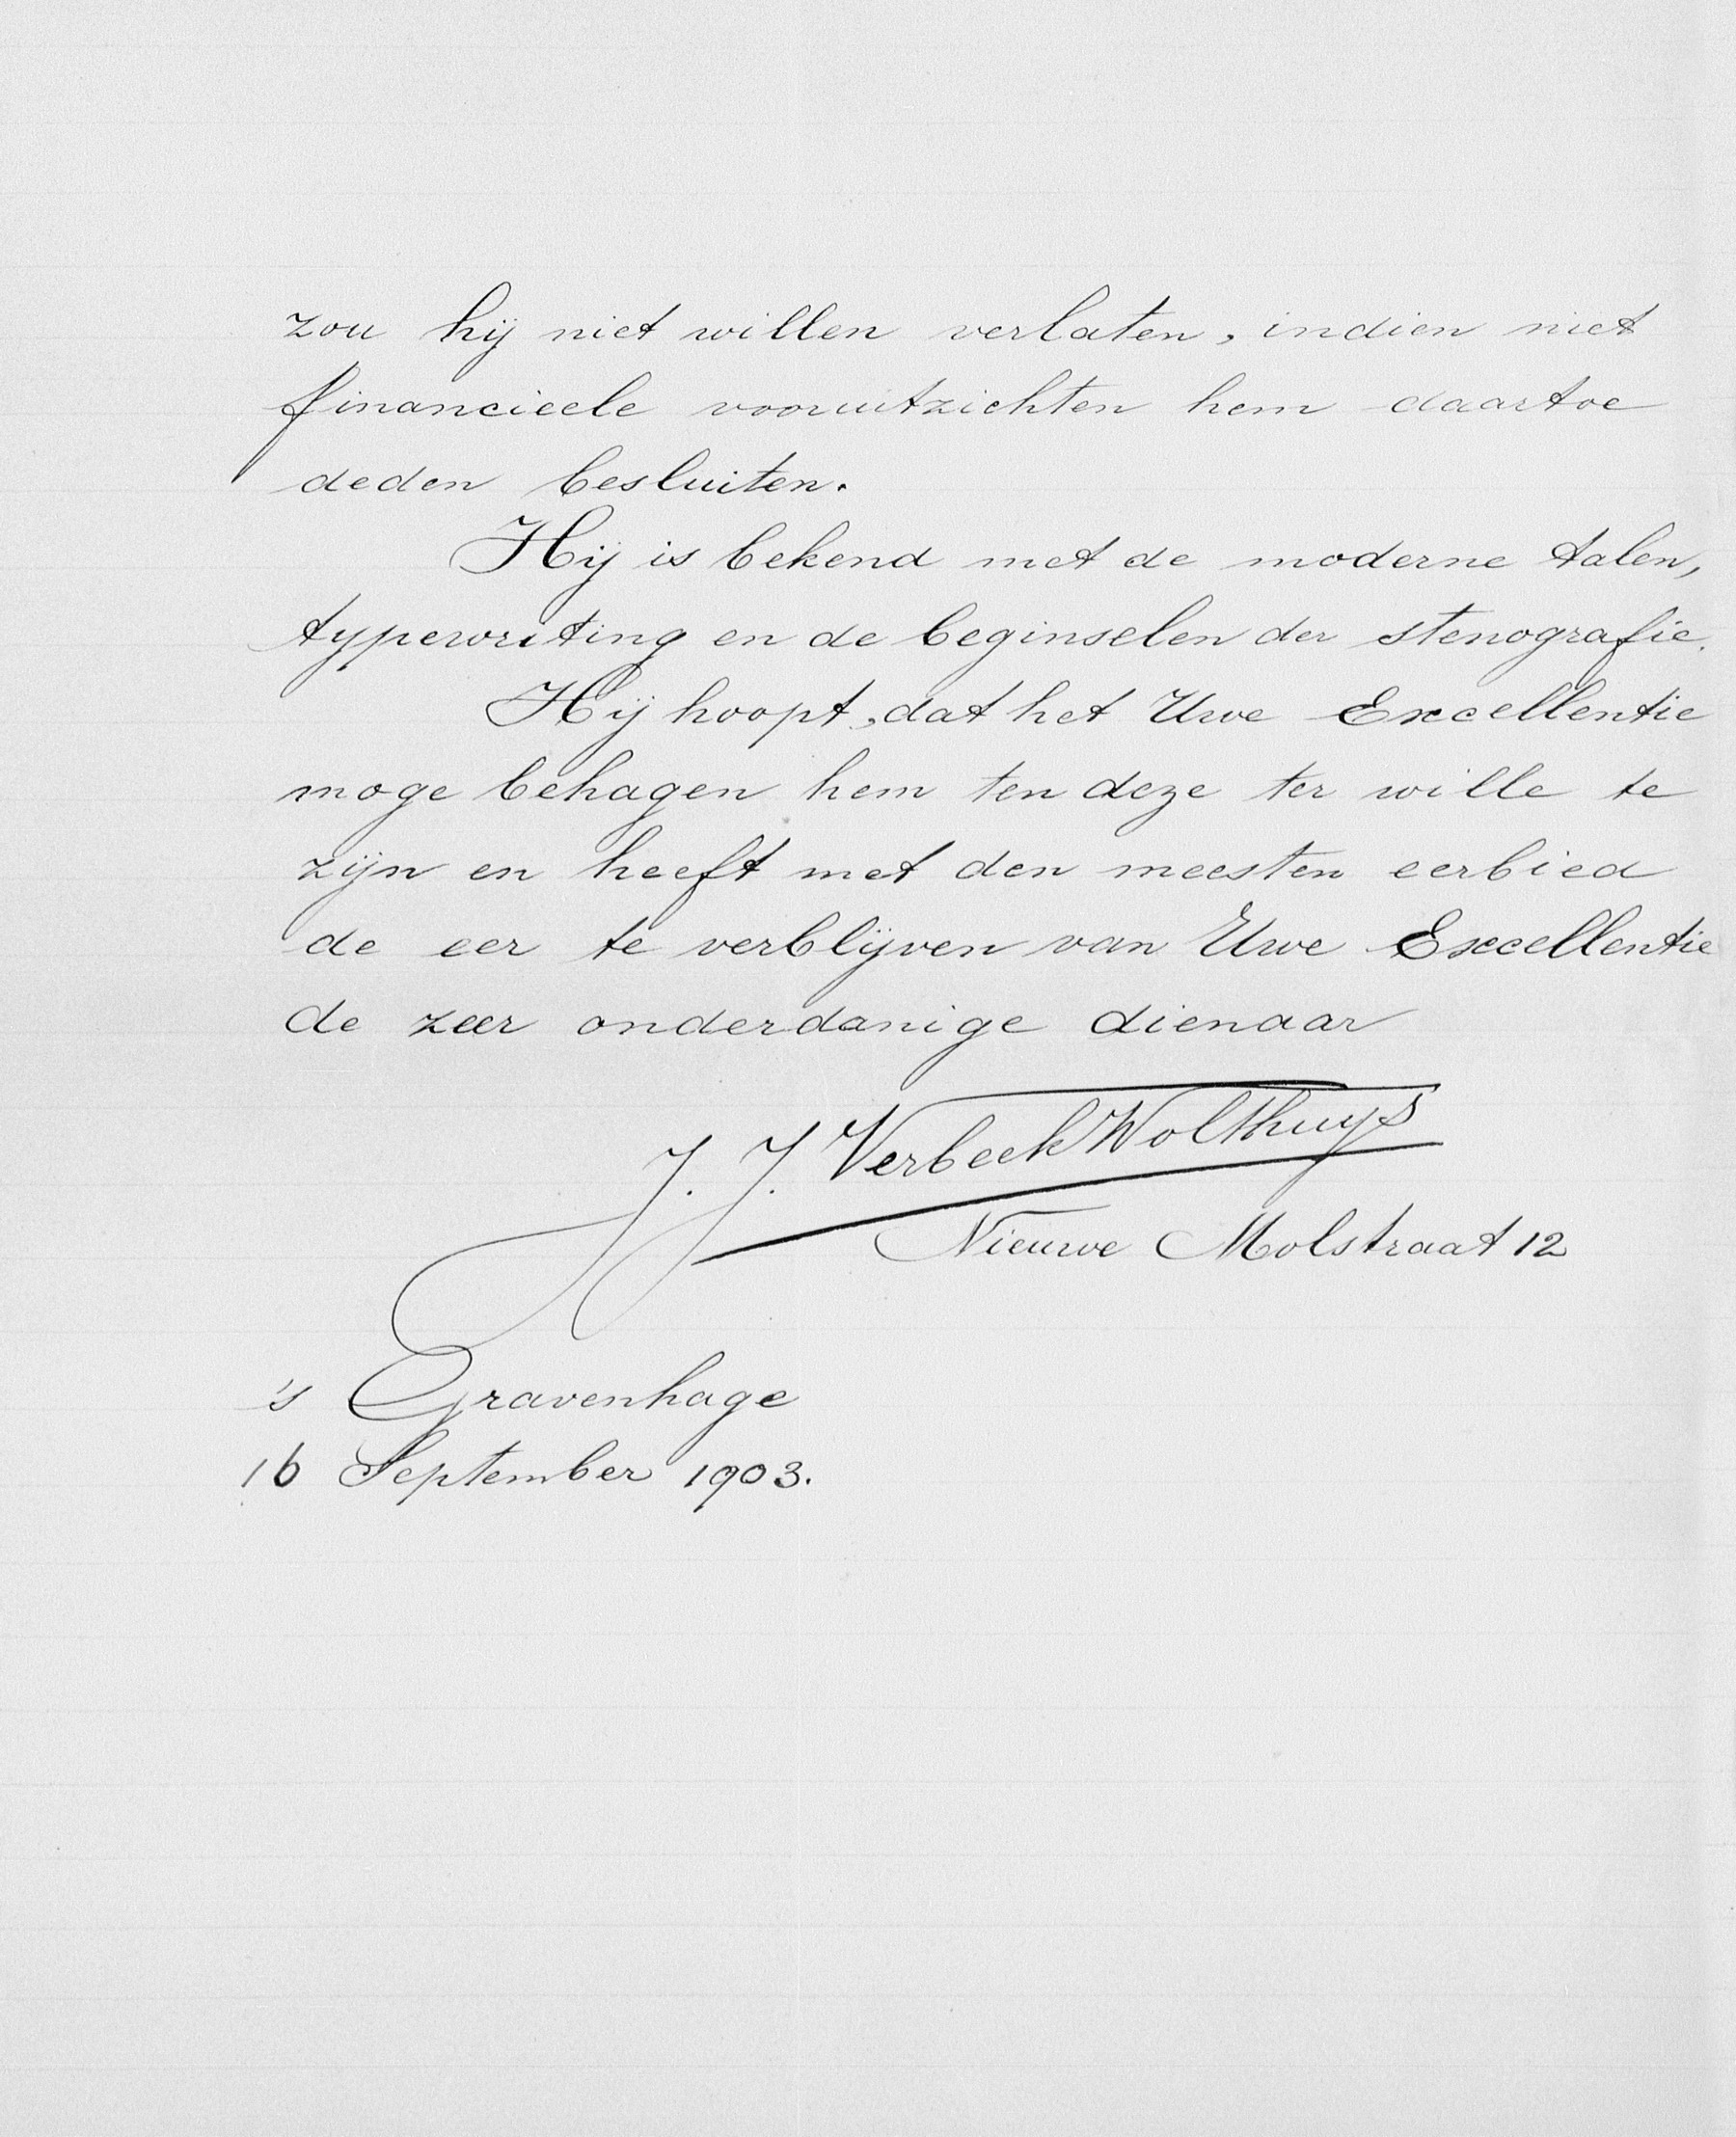 zou hij niet willen verlaten, indien niet
financieele vooruitzichten hem daartoe
deden besluiten.
Hij is bekend met de moderne talen,
typewriting en de beginselen der stenografie.
Hij hoopt, dat het Uwe Excellentie
moge behagen hem ten deze ter wille te
zijn en heeft met den meesten eerbied
de eer te verblijven van Uwe Excellentie
de zeer onderdanige dienaar
J. J. Verbeek Wolthuys
Nieuwe Molstraat 12
's Gravenhage
16 September 1903.